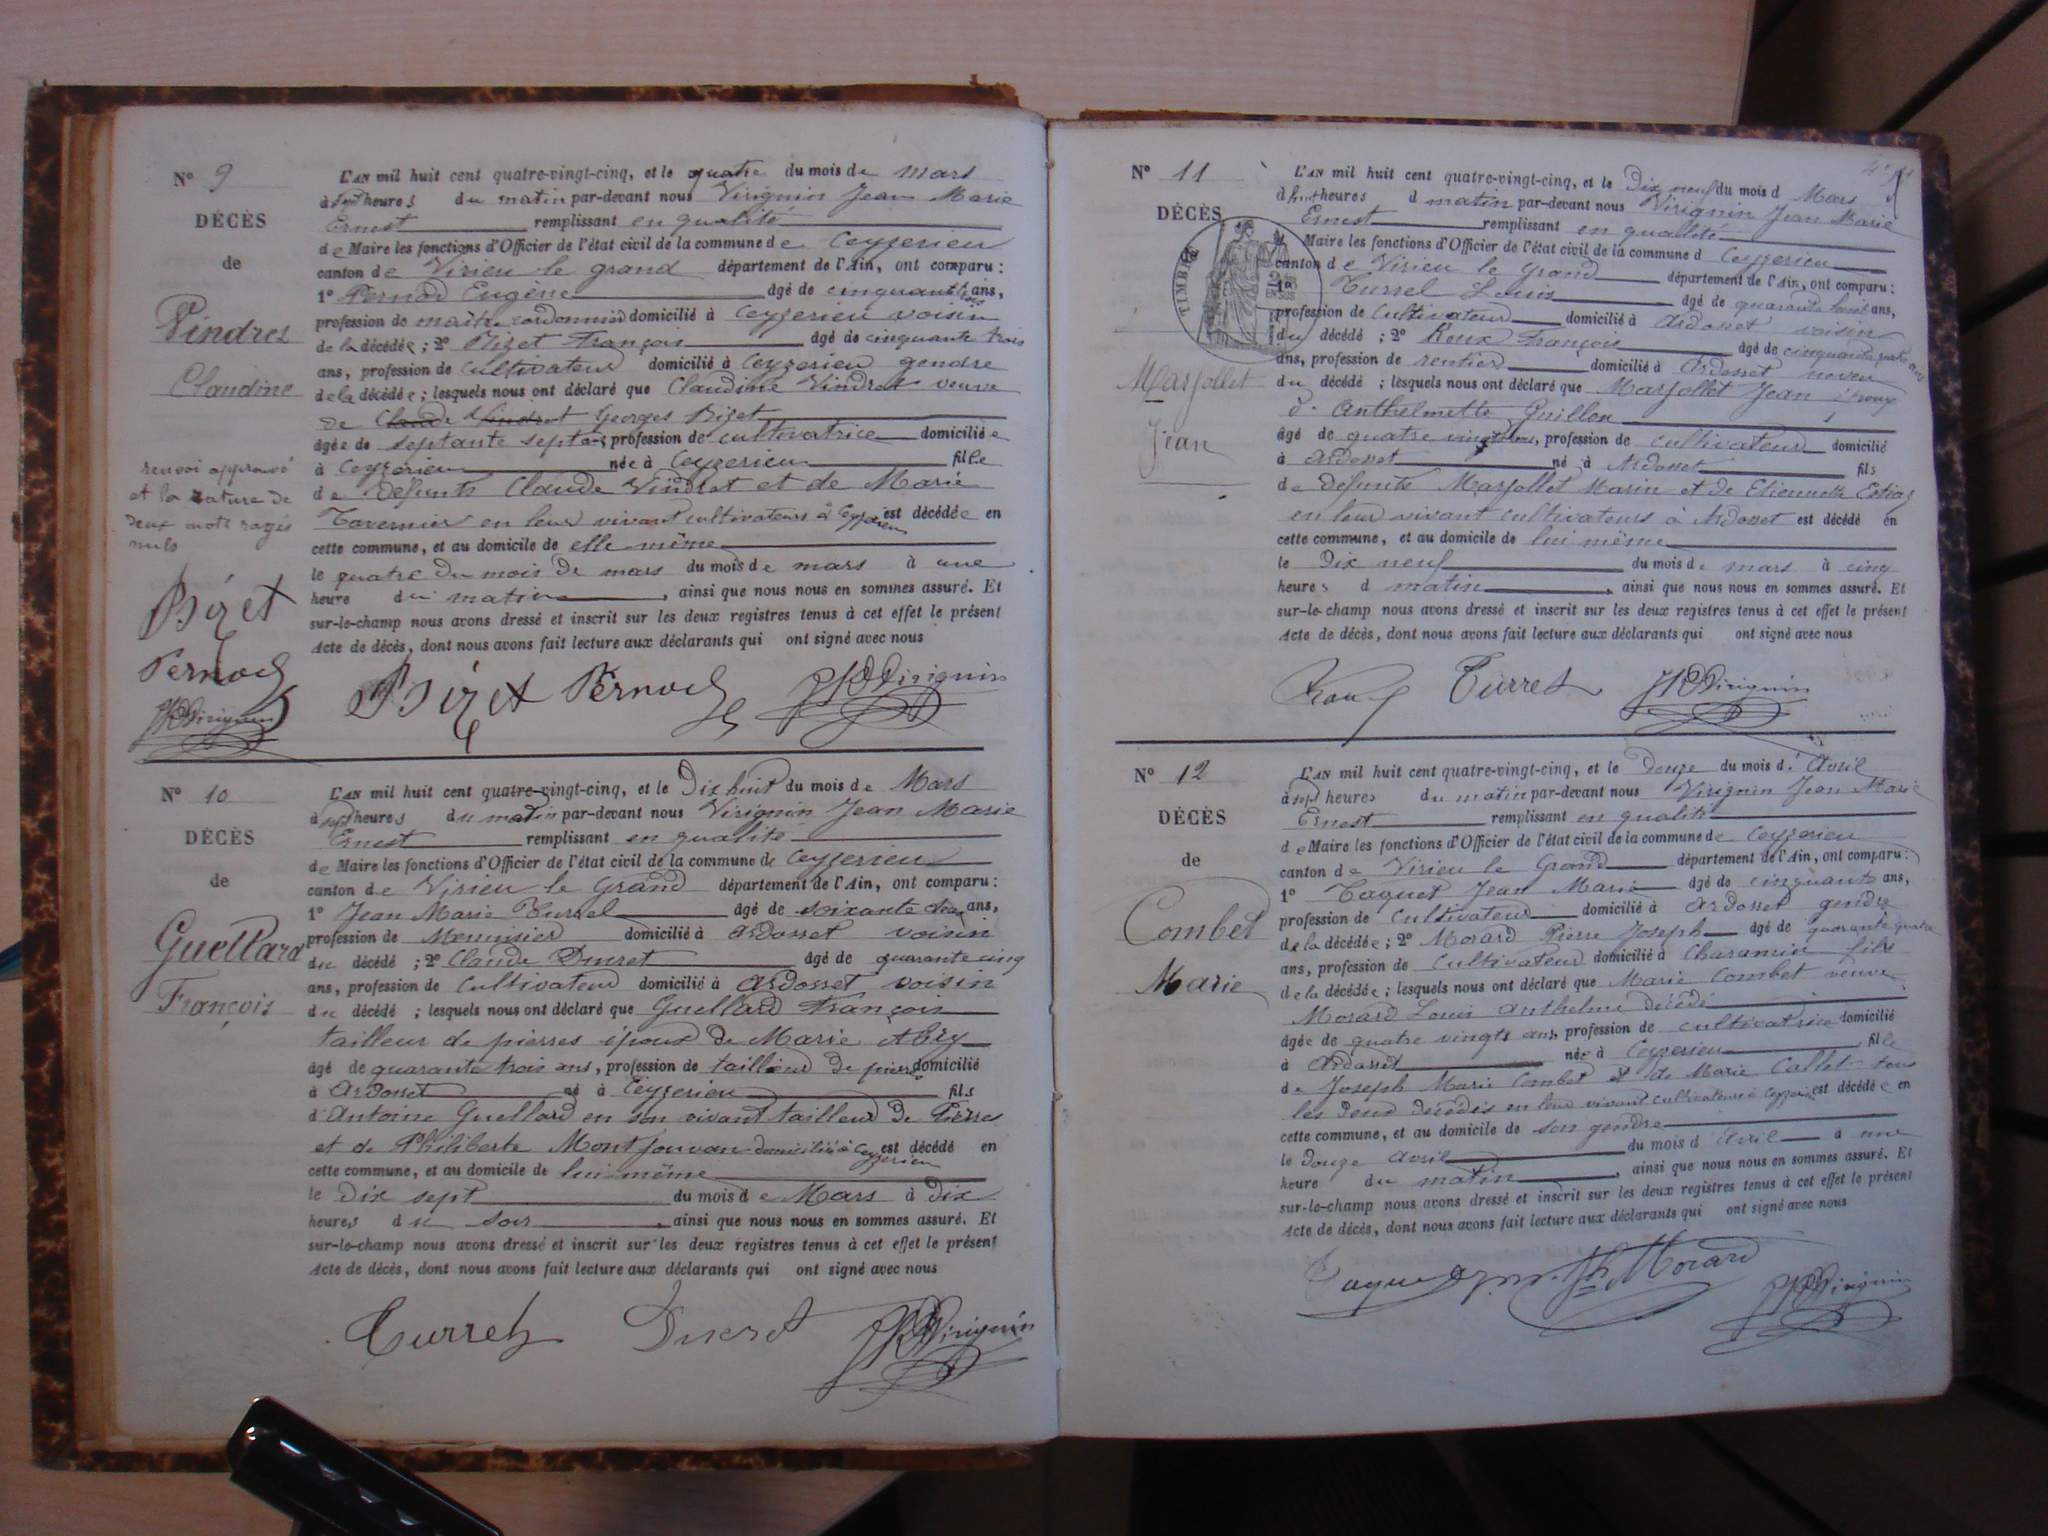 N° 9
DÉCÈS
de
Vindret
Claudine
renvoi approuvé
et la rature de
deux mots rayés
nuls
Bizet
Pernod
Virignin
L'AN mil huit cent quatre-vingt-cinq, et le quatre du mois de mars
à sept heures du matin par-devant nous Virignin Jean Marie
Ernest remplissant en qualité
de Maire les fonctions d'Officier de l'état civil de la commune de Ceyzerieu
canton de Virieu le grand département de l'Ain, ont comparu :
1° Pernod Eugène âgé de cinquante trois ans,
profession de maître cordonnier domicilié à Ceyzerieu voisin
de la décédée ; 2° Bizet François âgé de cinquante trois
ans, profession de cultivateur domicilié à Ceyzerieu gendre
de la décédée ; lesquels nous ont déclaré que Claudine Vindret veuve
de Claude Vindret Georges Bizet
âgée de septante sept ans profession de cultivatrice domiciliée
à Ceyzerieu née à Ceyzerieu fille
de défunts Claude Vindret et de Marie
Tavernier en leur vivant cultivateurs à Ceyzerieu est décédée en
cette commune, et au domicile de elle même
le quatre du mois de mars du mois de mars à une
heure du matin, ainsi que nous nous en sommes assuré. Et
sur-le-champ nous avons dressé et inscrit sur les deux registres tenus à cet effet le présent
Acte de décès, dont nous avons fait lecture aux déclarants qui ont signé avec nous
Bizet Pernod Virignin
N° 10
DÉCÈS
de
Guellard
François
L'AN mil huit cent quatre-vingt-cinq, et le Dix huit du mois de Mars
à sept heures du matin par-devant nous Virignin Jean Marie
Ernest remplissant en qualité
de Maire les fonctions d'Officier de l'état civil de la commune de Ceyzerieu
canton de Virieu le Grand département de l'Ain, ont comparu :
1° Jean Marie Turrel âgé de soixante ans,
profession de Menuisier domicilié à Ardosset voisin
du décédé ; 2° Claude Ducret âgé de quarante cinq
ans, profession de cultivateur domicilié à Ardosset voisin
du décédé ; lesquels nous ont déclaré que Guellard François
tailleur de pierres époux de Marie Abry
âgé de quarante trois ans, profession de tailleur de pierre domicilié
à Ardosset né à Ceyzerieu fils
d'Antoine Guellard en son vivant tailleur de Pierres
et de Philiberte Montjouvan domiciliée à Ceyzerieu est décédé en
cette commune, et au domicile de lui même
le Dix sept du mois de Mars à Dix
heures du soir, ainsi que nous nous en sommes assuré. Et
sur-le-champ nous avons dressé et inscrit sur les deux registres tenus à cet effet le présent
Acte de décès, dont nous avons fait lecture aux déclarants qui ont signé avec nous
Turrel Ducret Virignin
N° 11
DÉCÈS
TIMBRE
2/10
EN SUS
Marjollet
Jean
L'AN mil huit cent quatre-vingt-cinq, et le Dix neuf du mois d Mars
à huit heures d matin par-devant nous Virignin Jean Marie
Ernest remplissant en qualité
Maire les fonctions d'Officier de l'état civil de la commune d Ceyzerieu
canton de Virieu le Grand département de l'Ain, ont comparu :
1° Turrel Louis âgé de quarante huit ans,
profession de Cultivateur domicilié à Ardosset voisin
du décédé ; 2° Roux François âgé de cinquante quatre
ans, profession de rentier domicilié à Ardosset neveu
du décédé ; lesquels nous ont déclaré que Marjollet Jean époux
d' Anthelmette Guillon
âgé de quatre vingt ans, profession de cultivateur domicilié
à Ardosset né à Ardosset fils
de défunts Marjollet Marin et de Etiennette
en leur vivant cultivateurs à Ardosset est décédé en
cette commune, et au domicile de lui même
le Dix neuf du mois de mars à cinq
heures d matin, ainsi que nous nous en sommes assuré. Et
sur-le-champ nous avons dressé et inscrit sur les deux registres tenus à cet effet le présent
Acte de décès, dont nous avons fait lecture aux déclarants qui ont signé avec nous
Roux Turrel Virignin
N° 12
DÉCÈS
de
Combet
Marie
L'AN mil huit cent quatre-vingt-cinq, et le Douze du mois d'Avril
à sept heures du matin par-devant nous Virignin Jean Marie
Ernest remplissant en qualité
de Maire les fonctions d'Officier de l'état civil de la commune de Ceyzerieu
canton de Virieu le Grand département de l'Ain, ont comparu :
1° Taquet Jean Marie âgé de cinquante ans,
profession de Cultivateur domicilié à Ardosset gendre
de la décédée ; 2° Morard Pierre Joseph âgé de quarante quatre
ans, profession de Cultivateur domicilié à Charamin fils
de la décédée ; lesquels nous ont déclaré que Marie Combet veuve
Morard Louis Anthelme décédé
âgée de quatre vingts ans, profession de cultivatrice domicilié
à Ardosset née à Ceyzerieu fille
de Joseph Marie Combet et de Marie Callet tous
les deux décédés en leur vivant cultivateurs à Ceyzerieu est décédée en
cette commune, et au domicile de son gendre
le douze avril du mois d Avril à une
heure du matin, ainsi que nous nous en sommes assuré. Et
sur-le-champ nous avons dressé et inscrit sur les deux registres tenus à cet effet le présent
Acte de décès, dont nous avons fait lecture aux déclarants qui ont signé avec nous
Morard Virignin